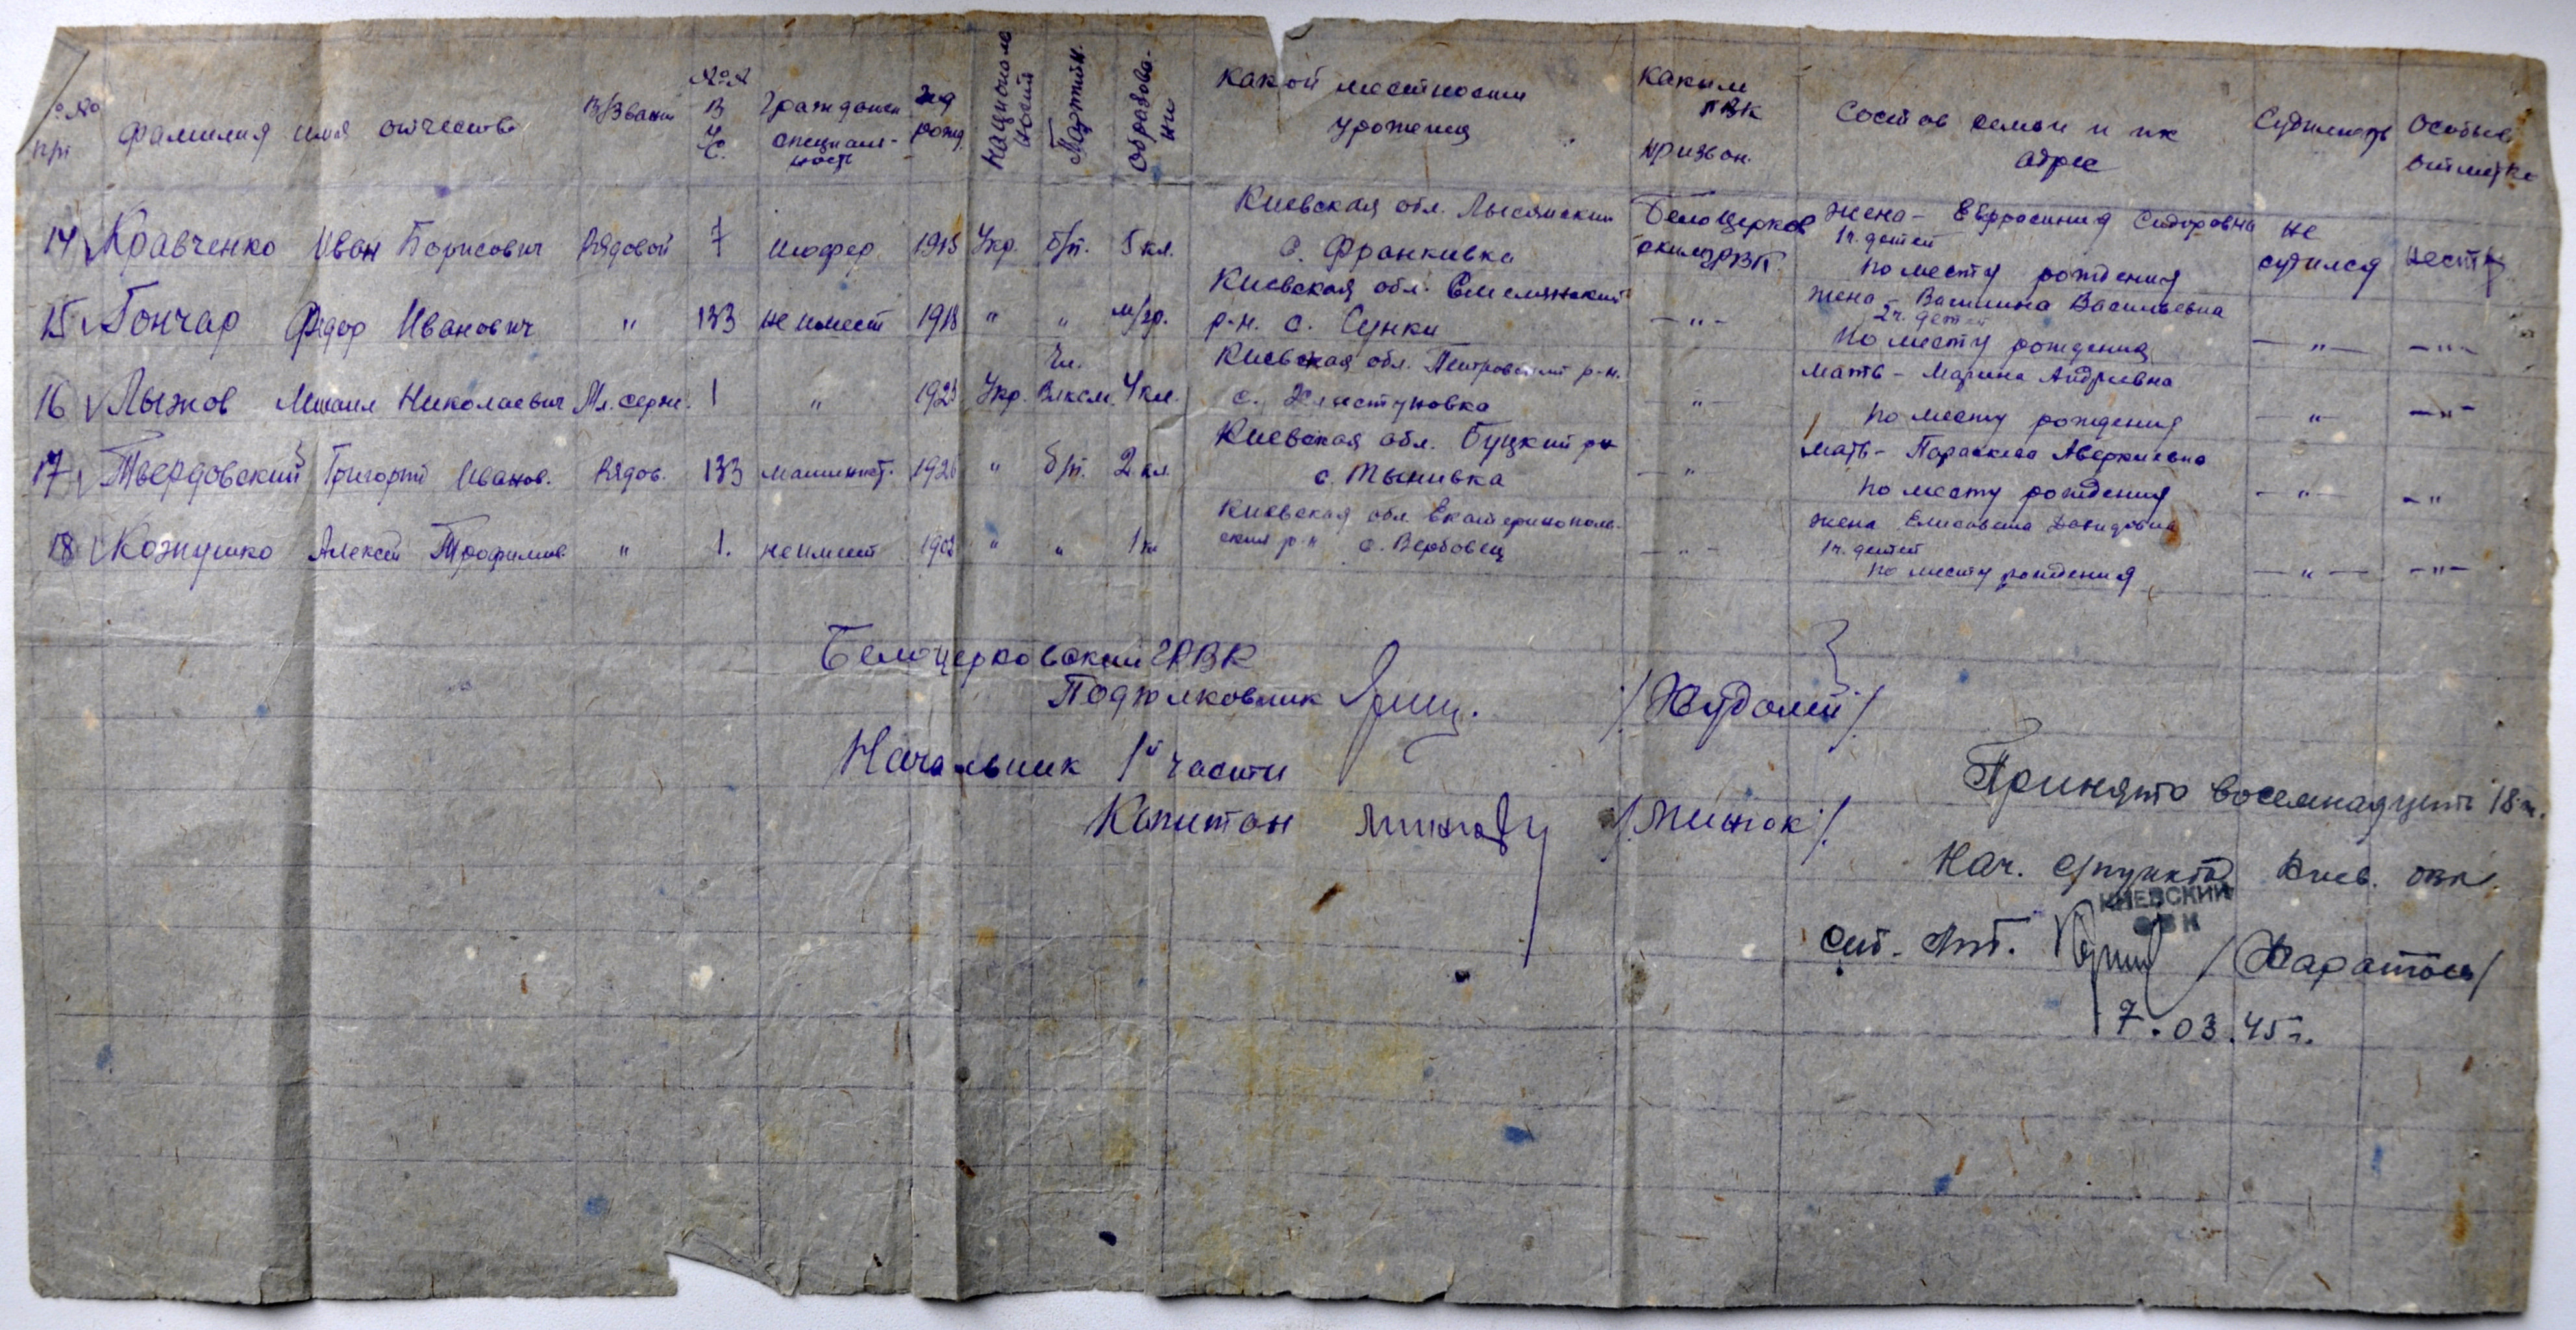 №№ п/п Фамилия имя отчество В/звание №№ В У.С. Граждан. специальность год рожд. Национальность Партийн. Образование Какой местности уроженец Каким РВК призван. Состав семьи и их адрес Судимость Особые отметки
14 Кравченко Иван Борисович Рядовой 7 шофер 1915 Укр. б/п. 5 кл. Киевская обл. Лысянский с. Франкивка Белоцерковским ГРВК. Жена - Евфросиния Сидоровна 1ч. детей по месту рождения не судился нету
15 Гончар Федор Иванович " 133 не имеет 1918 " " м/гр. Киевская обл. Смелянский р-н. с. Сунки - " - Жена - Василина Васильевна 2ч. детей по месту рождения - " - - " -
16 Лыжов Михаил Николаевич Мл. серж. 1 " 1923 Укр. Чл. Влксм. 4 кл. Киевская обл. Петровский р-н. с. Хлистуновка - " - Мать - Марина Андреевна по месту рождения - " - - " -
17 Твердовский Григорий Иванов. Рядов. 133 машинист. 1926 " б/п. 2 кл. Киевская обл. Буцкий р-н с. Тынивка - " Мать - Параскева Аверкиевна по месту рождения - " - - "
18 Кожушко Алексей Трофимов. " 1. не имеет 1902 " " 1 кл Киевская обл. Екатеринопольский р-н с. Вербовец - " - Жена Елисавета Давидовна 1ч. детей по месту рождения - " - - " -
Белоцерковский ГРВК
Подполковник /Худолей/
Начальник 1й части
Капитан /Минок/
Принято восемнадцать 18 ч.
Нач. с/пункта Киев. ОВК.
КИЕВСКИЙ
ОВК
Ст. Лт. /Харатон/
7.03.45 г.